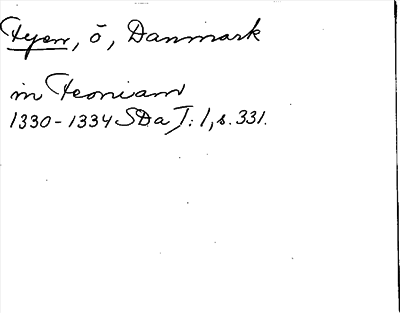 Fyen, ö, Danmark
in Feoniam
1330-1334 SDa I: 1, s. 331.